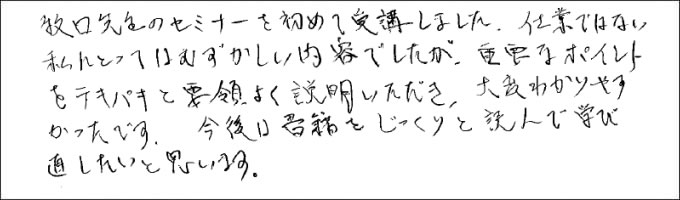 牧口先生のセミナーを初めて受講しました。仕業ではない
私にとってはむずかしい内容でしたが、重要なポイント
をテキパキと要領よく説明いただき、大変わかりやす
かったです。 今後は書籍をじっくりと読んで学び
直したいと思います。